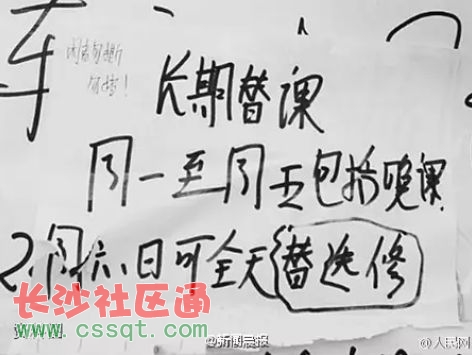 车
闲者勿撕
勿掉!
长期替课
周一至周五包括晚课
2.周六、日可全天替选修
长沙社区通
www.cssqt.com
@新闻晨报
@人民网